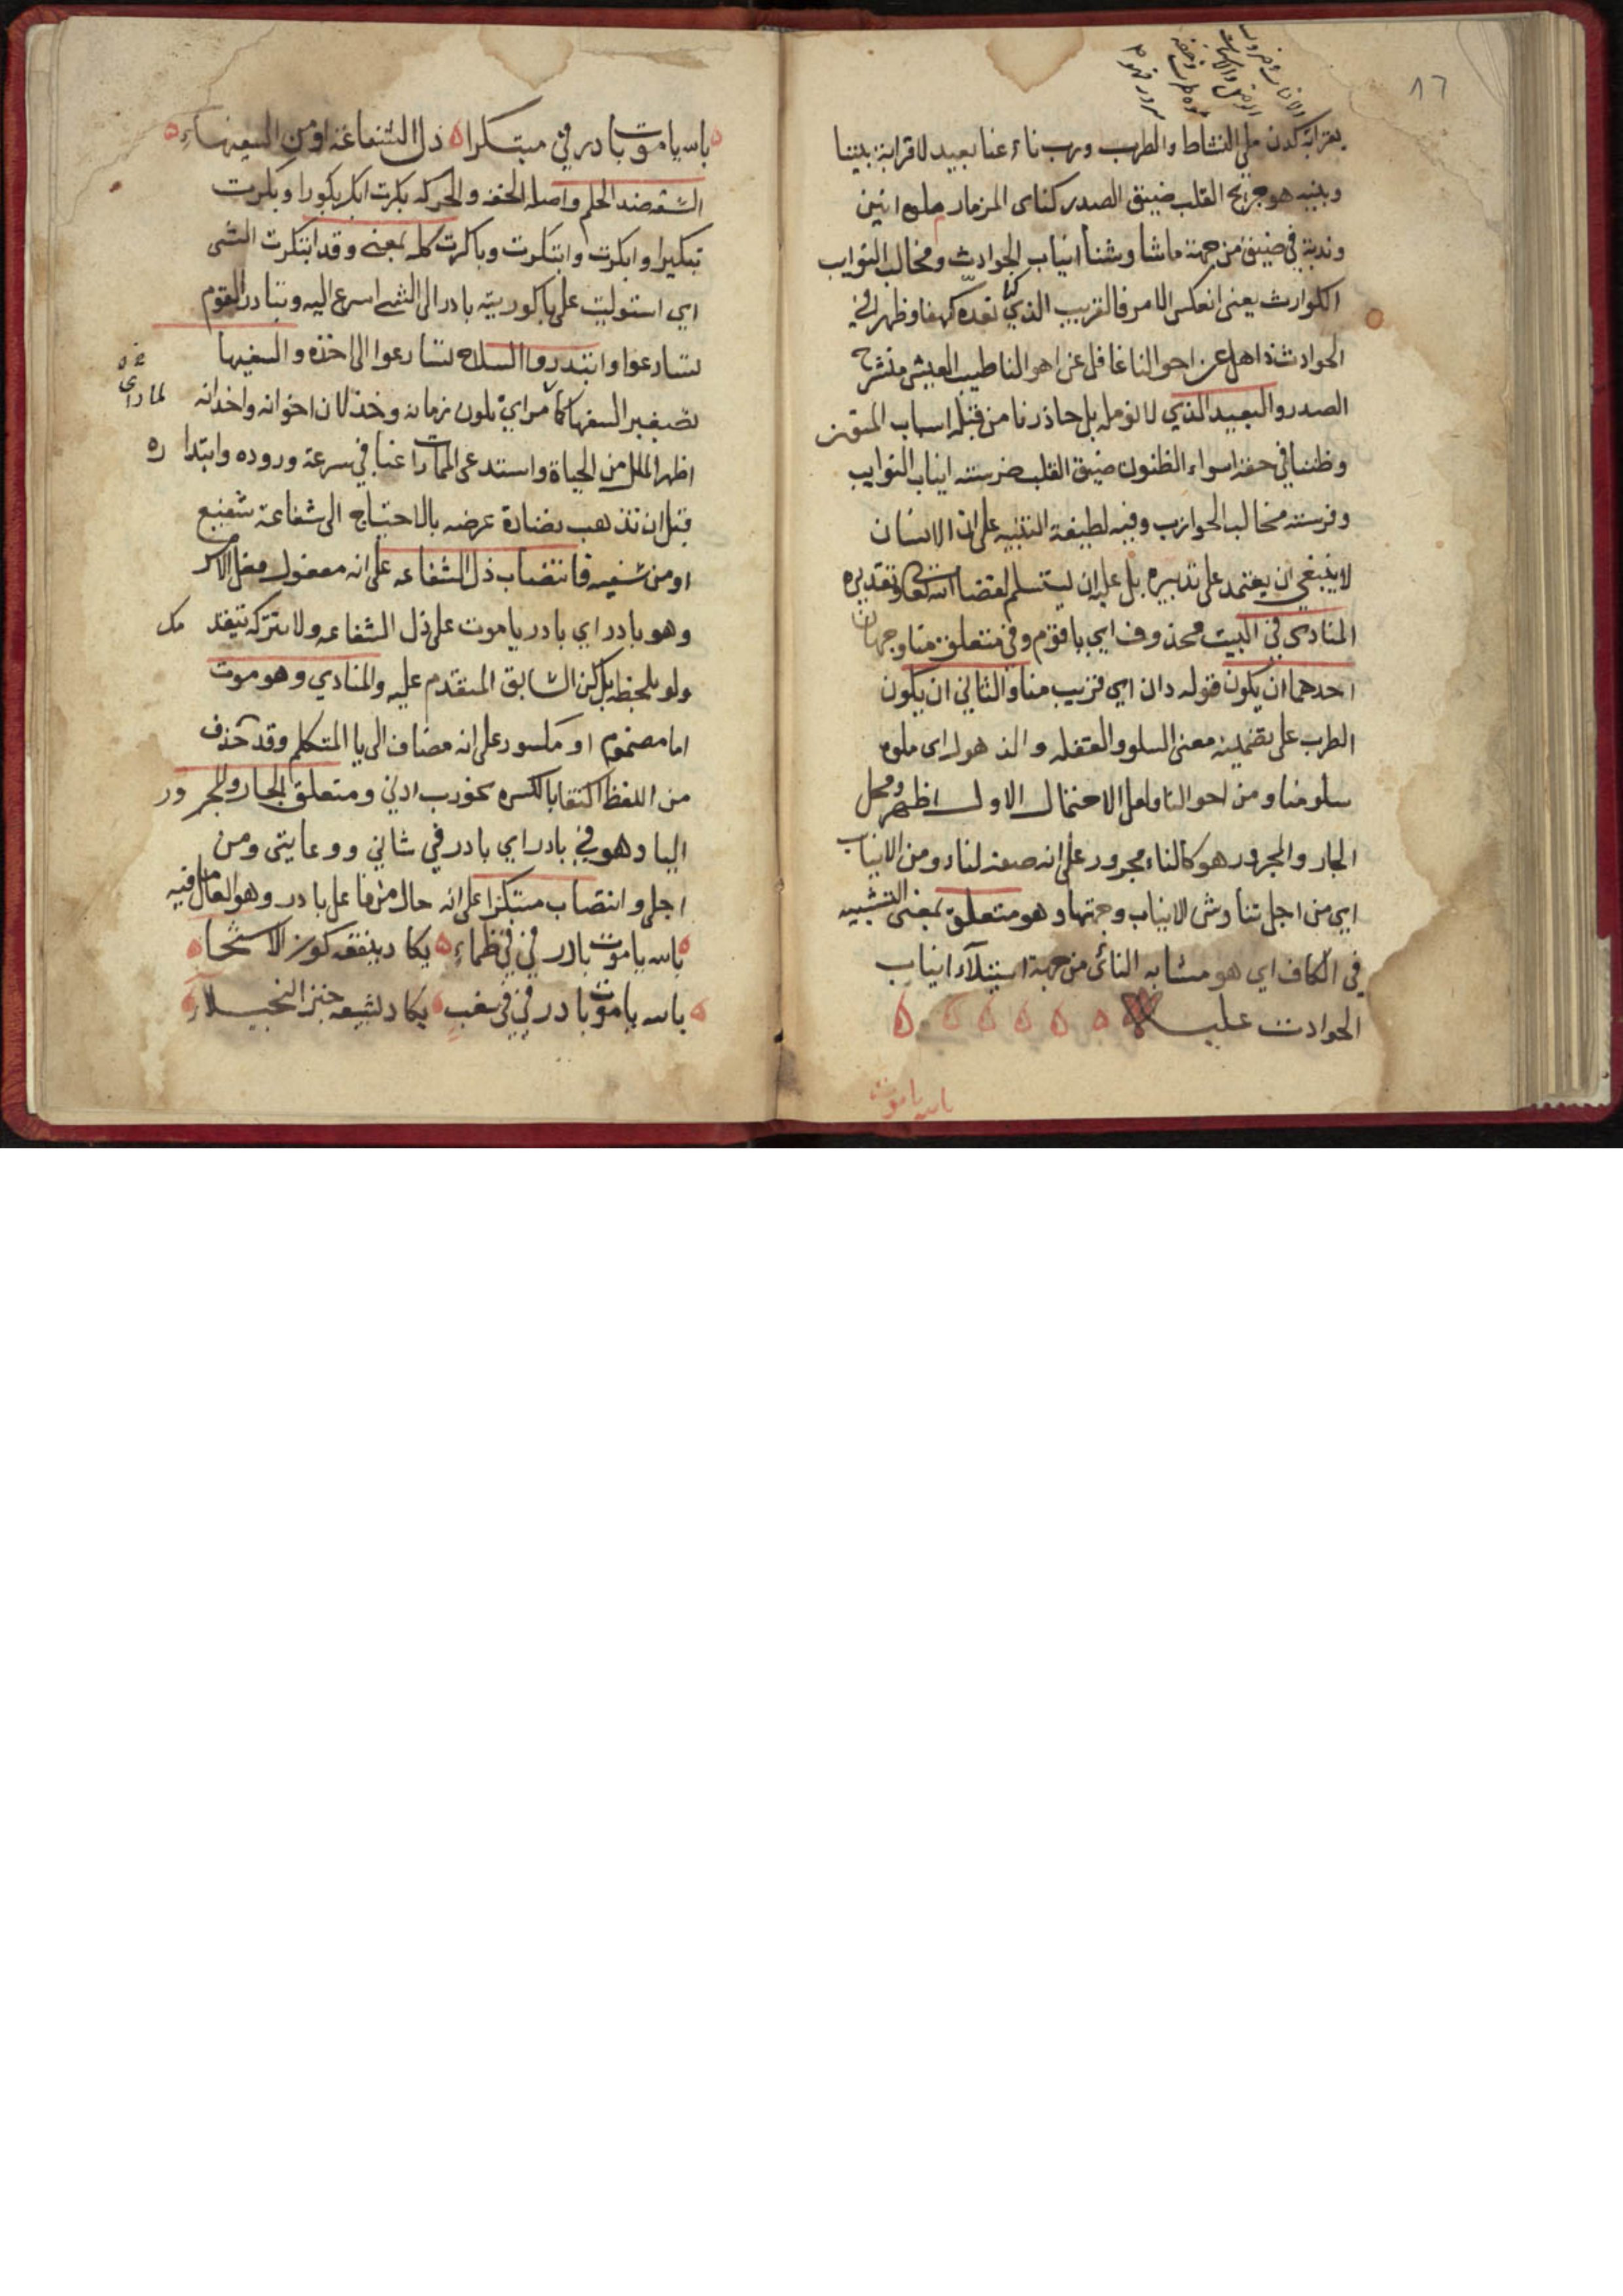 ١٦
بقرابة كدن ملي النشاط والطرب ورب ناء عنا بعيد لا قرابة بيننا
وبينه هو جريح القلب ضيق الصدر كناى المزمار ملوه انين
وندبة في ضيق من جهة ما شاوشنا انياب الحوادث ومخالب النوايب
الكوارث يعنى انعكس الامر فالقريب الذي كنا نعده كهفا وظهرا في
الحوادث ذاهل عن احوالنا غافل عن اهوالنا طيب العيش منشرح
الصدر والبعيد الذي لا نومله بل حاذرنا من قبله اسباب
وظننا في حقه اسواء الظنون ضيق القلب ضرسته انياب النوايب
وفرسته مخالب الحوازب وفيه لطيفة التنبيه على ان الانسان
لا ينبغي ان يعتمد على تدبيره بل عليه ان يستسلم لقضا الله تعالى وتقديره
المنادى في البيت محذوف اي يا قوم وفي متعلق منا وجهان
احدهما ان يكون قوله دان اي قريب منا والثاني ان يكون
الطرب على تضمينه معنى السلو والغفله والذهول اى ملوه
سلو منا ومن احوالنا ولعل الاحتمال الاول اظهر ومحل
الجار والمجرور هو كالناء مجرور على انه صفة لناء ومن الانياب
اي من اجل تناوش الانياب وجهتها وهو متعلق بمعنى التشبيه
في الكاف اي هو مشابه النائى من جهة استيلآء انياب
الحوادث عليه
بالله يا موت
بالله يا موت بادر في مبتكرا ذل الشفاعة او من السفيهاء
السفه ضد الحلم واصله الخفه والحركه بكرت ابكر بكورا وبكرت
تبكيرا وابكرت وابتكرت وباكرت كله بمعنى وقد ابتكرت الشى
اي استوليت على باكوريته بادر الى الشى اسرع اليه وتبادر القوم
تسارعوا وابتدروا السلاح تسارعوا الى اخذه والسفيها
تصغير السفها لما راي تلون زمانه وخذلان اخوانه واخدانه
لما راى
اظهر الملل من الحياة واستدعى الممات راغبا في سرعة وروده وابتداره
قبل ان تذهب نضارة عرضه بالاحتياج الى شفاعة شفيع
او من سفيه فانتصاب ذل الشفاعه على انه مفعول فعل الامر
وهو بادر اي بادر يا موت على ذل الشفاعه ولا تتركه يتقدمك
ولو بلحظه بل كن السابق المتقدم عليه والمنادي وهو موت
اما مضموم او مكسور على انه مضاف الى يا المتكلم وقد حذف
من اللفظ اكتفا بالكسره نحو رب ادني ومتعلق الجار والمجرور
اليا وهو في بادر اي بادر في شاني ورعايتى ومن
اجلى وانتصاب مبتكرا على انه حال من فاعل بادر وهو العامل فيه
بالله يا موت بادر في في ظماء يكاد ينقعه كوز الاسخيا
بالله يا موت بادر في في سغب يكاد يشبعه خبز البخيلاء